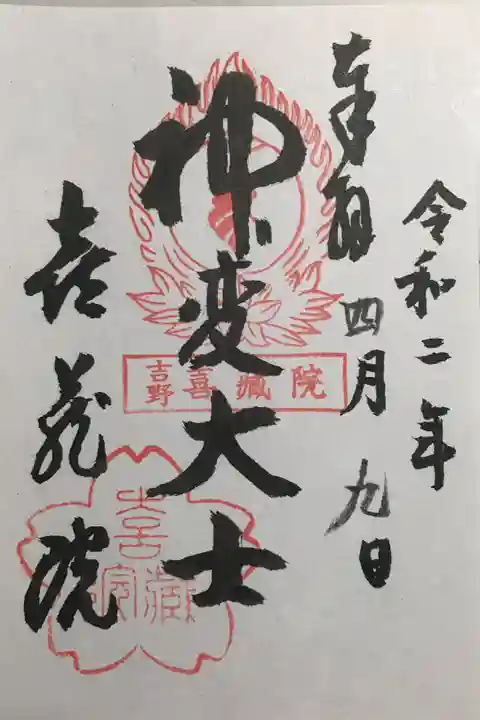 令和二年
奉拝 四月九日
神変大士
喜蔵院
吉野喜蔵院
喜蔵院